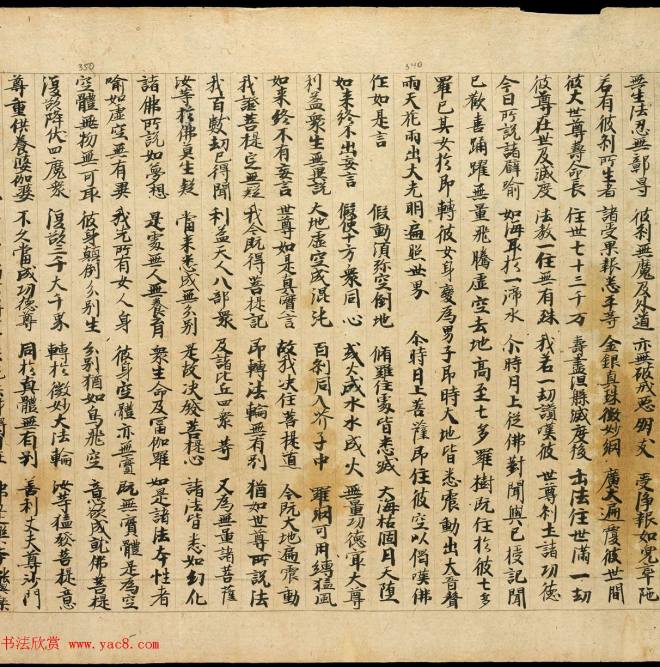 350
340
無生法忍無郭导 彼利無魔及外道 亦無破戒惡朋友 受淨報如兜率陁
若有彼利所生者 諸受果報悉平等 金銀真珠微妙網 廣大遍覆彼世間
彼大世尊壽命長 住世七十三千万 壽盡涅槃滅度後 出法住世滿一劫
彼尊在世及滅度 法教一住無有殊 我若一劫讃嘆彼 世尊刹土諸功德
今日所說諸譬喻 如海取於一渧水 尒時月上從佛對聞與已授記聞
已歡喜踊躍無量飛騰虛空去地高至七多羅樹既住於彼七多
羅已其女於即轉彼女身變為男子即時大地皆悉震動出大音聲
雨天花雨出大光明遍照世界 尒時月上菩薩即住彼空以偈嘆佛
任如是言 假動湏弥空倒地 脩羅住處皆悉滅 大海枯涸日天墮
如来終不出妄言 假使十方衆同心 或火成水水成火 無量功德宗大尊
利益衆生無異說 大地虛空成混沌 百刹同入芥子中 羅網可用縛猛風
如来終不有妄言 世尊如是真實言 故我决住菩提道 今既大地遍震動
我證菩提定無疑 我今既得菩提記 即轉法輪無有別 猶如世尊所說法
我百數劫已得聞 利益天人八部衆 及諸比丘四衆等 又為無量諸菩薩
汝等於佛莫生疑 當来悉成無分別 是故决發菩提心 諸法皆悉如幻化
諸佛所說如夢想 是處無人無養育 衆生命及富伽羅 如是諸法本性者
喻如虛空無有異 我先所有女人身 彼身空體亦無實 既無實體是為空
空體無物無可取 彼身顛倒分別生 分別猶如鳥飛空 意欲成就佛菩提
復欲降伏四魔衆 復欲三千大千界 轉於微妙大法輪 汝等猛發菩提意
尊重供養婆伽婆 不久當成功德尊 同於真體無有別 善利丈夫尊沙門
书法欣赏 www.yac8.com